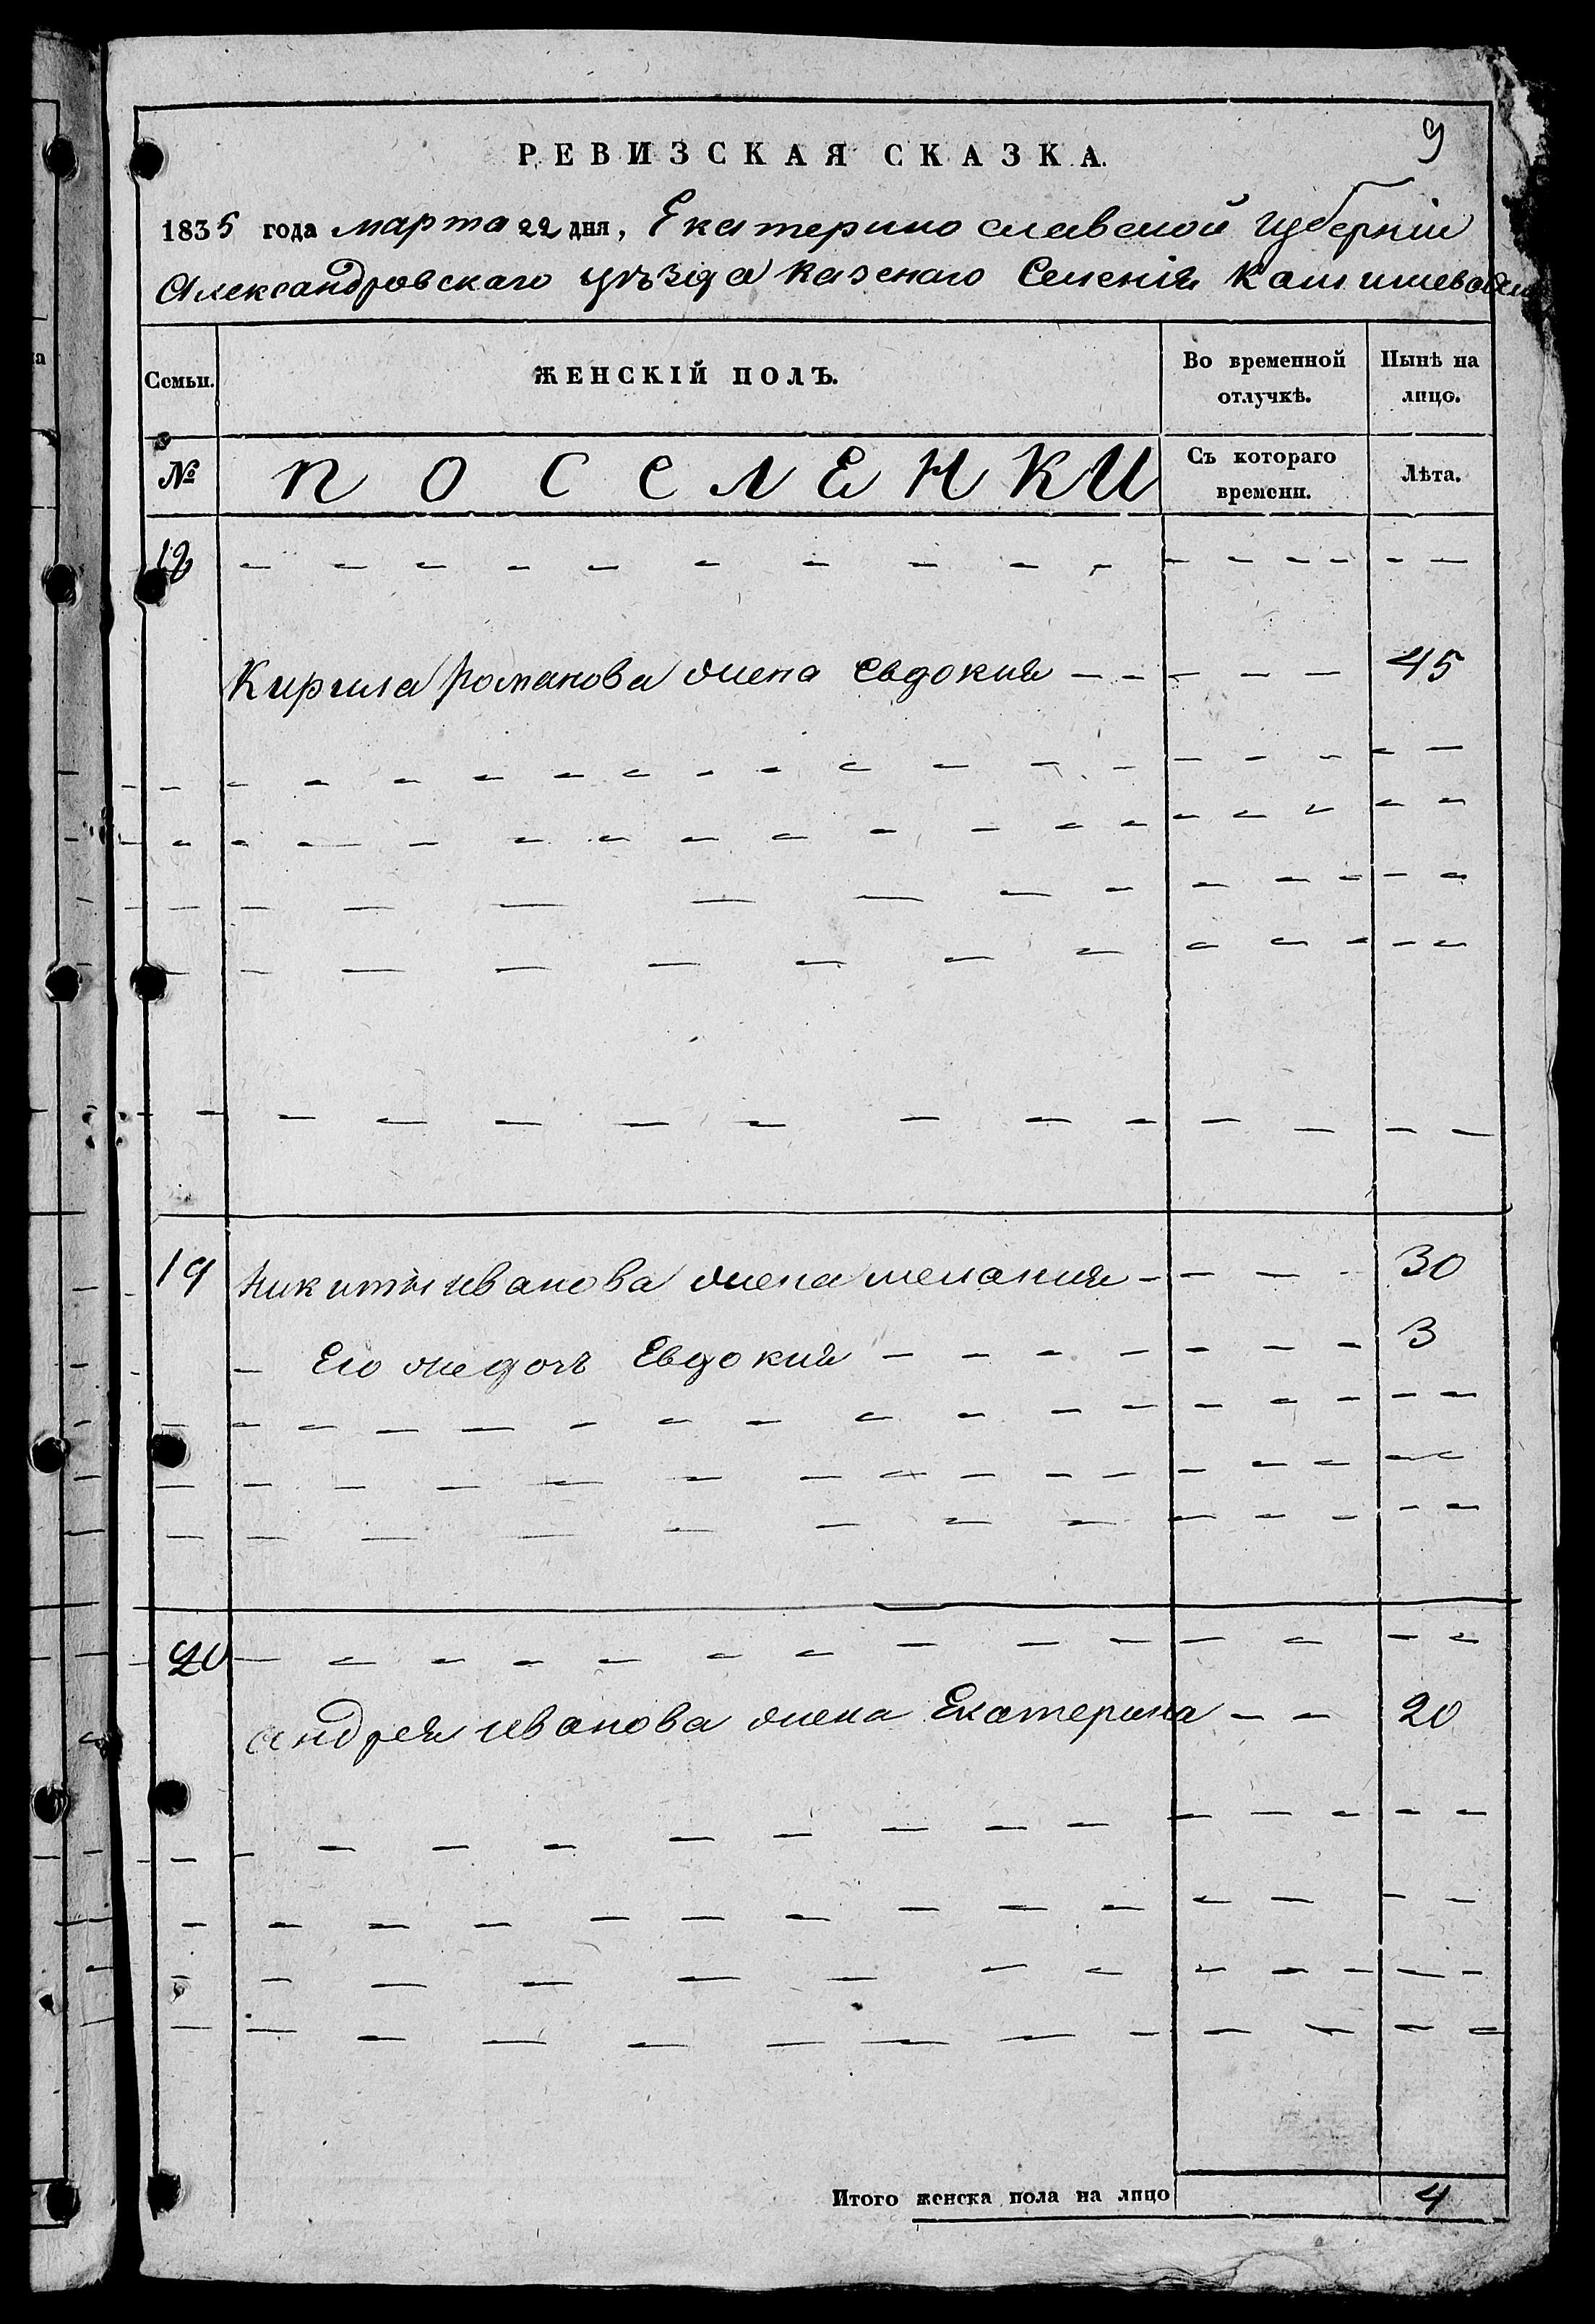 9
РЕВИЗСКАЯ СКАЗКА.
1835 года марта 22 дня, Екатеринославской губерніи
Александровскаго уѣзда казенаго Селенія
Семьи. ЖЕНСКІЙ ПОЛЪ. Во временной отлучкѣ. Нынѣ на лицо.
№ ПОСЕЛЕНКИ Съ котораго времени. Лѣта.
18
Кирила Романова жена Евдокия 45
19 Никиты иванова жена мелания 30
Его же дочь Евдокия 3
20
андрея иванова жена Екатерина 20
Итого женска пола на лицо 4